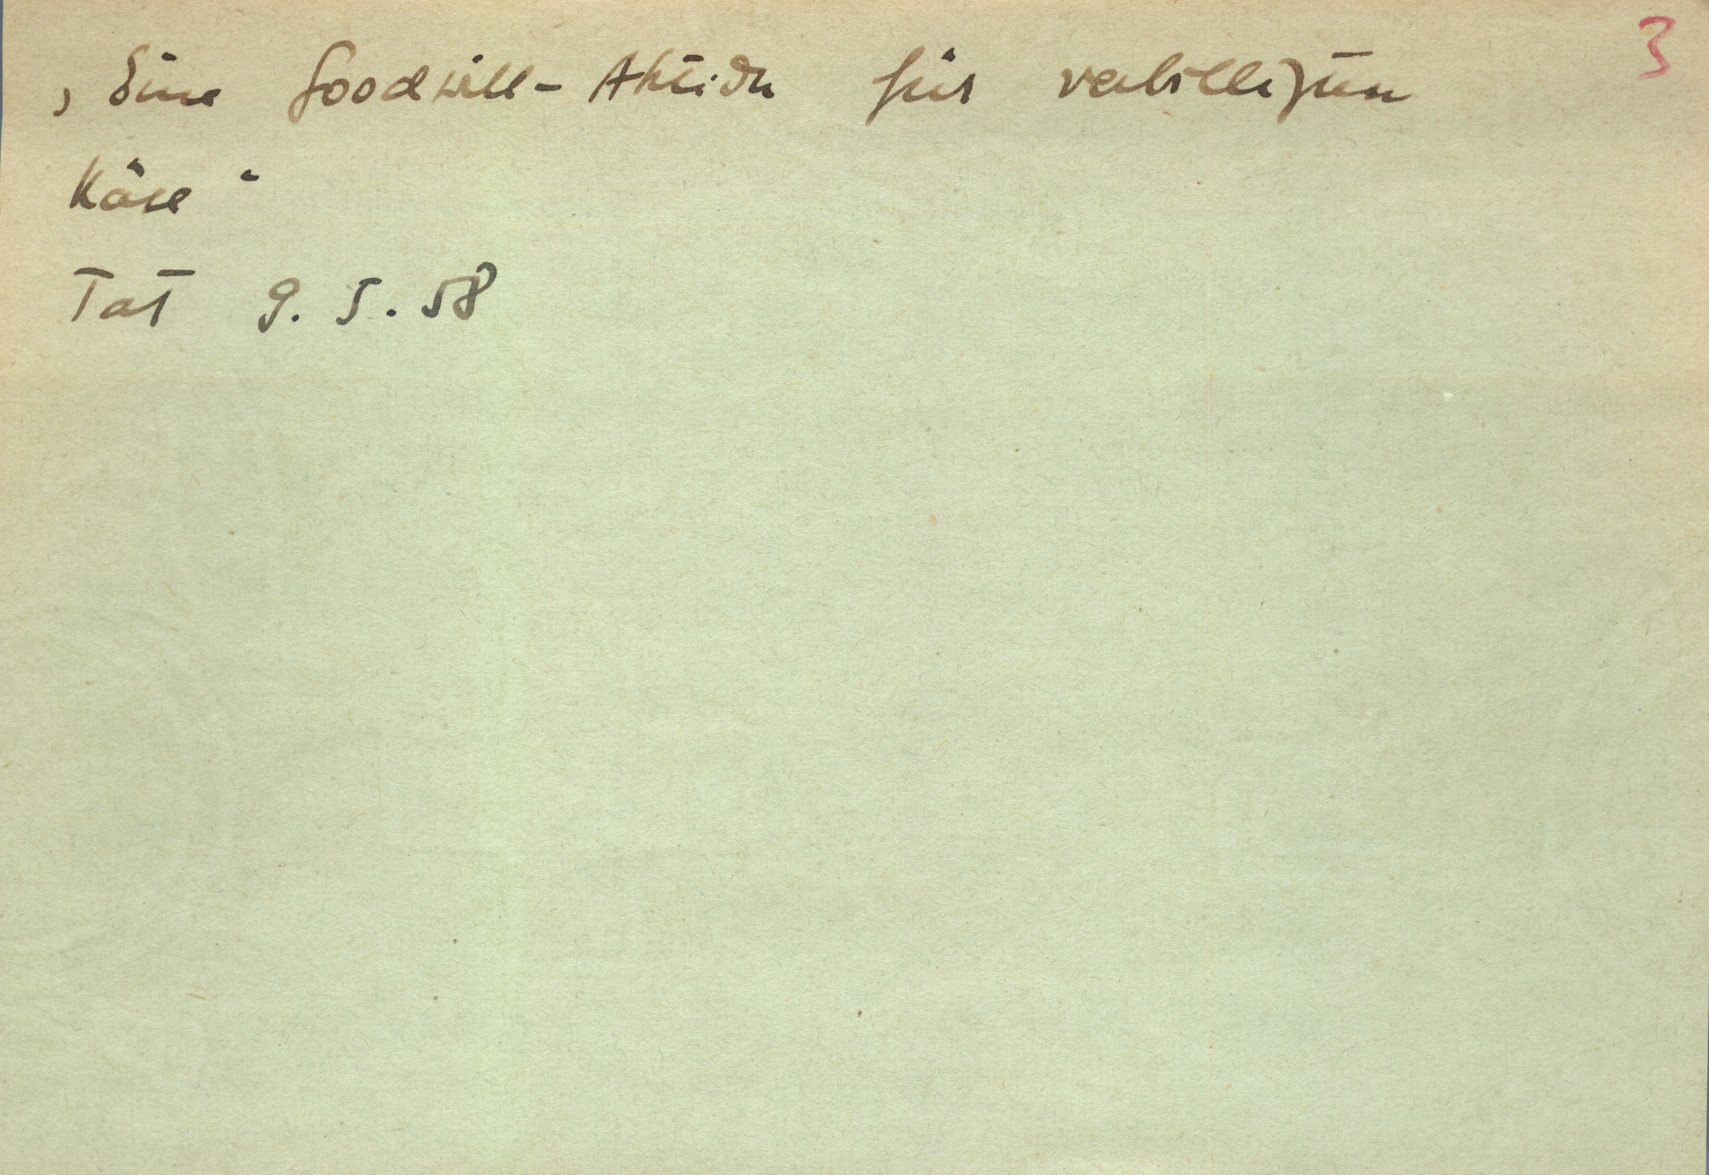 3
„Eine Goodwill-Aktion für verbilligten
Käse"
Tat 9. 5. 58